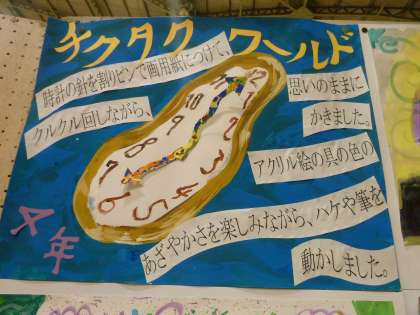 チクタクワールド
時計の針を割りピンで画用紙につけて、
クルクル回しながら、
思いのままに
かきました。
アクリル絵の具の色の
あざやかさを楽しみながら、ハケや筆を
動かしました。
12
11
10
9
8
7
6
5
4
3
2
1
4年